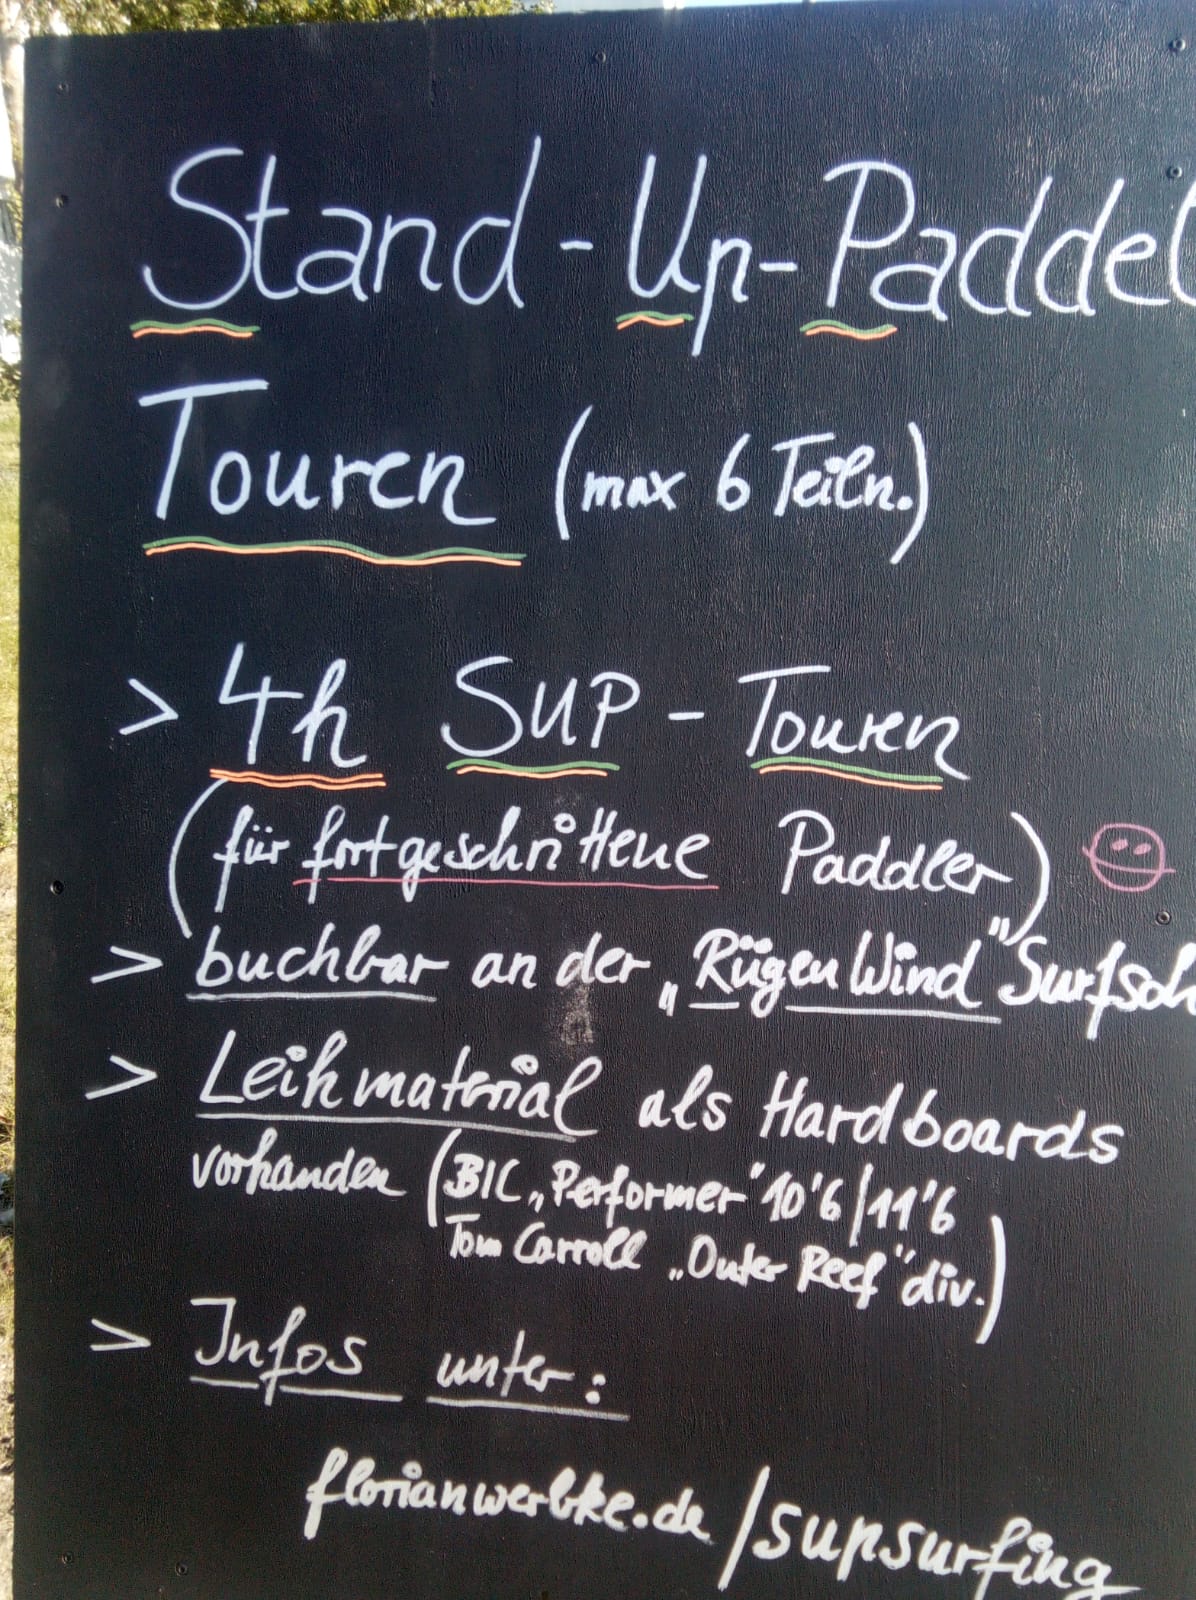 Stand-Up-Paddel
Touren (max 6 Teiln.)
> 4h SUP - Touren
(für fortgeschrittene Paddler)
> buchbar an der „RügenWind" Surfsch
> Leihmaterial als Hardboards
vorhanden (BIC „Performer" 10'6/11'6
Tom Carroll „Outer Reef" div.)
> Infos unter:
florianwerbke.de/supsurfing